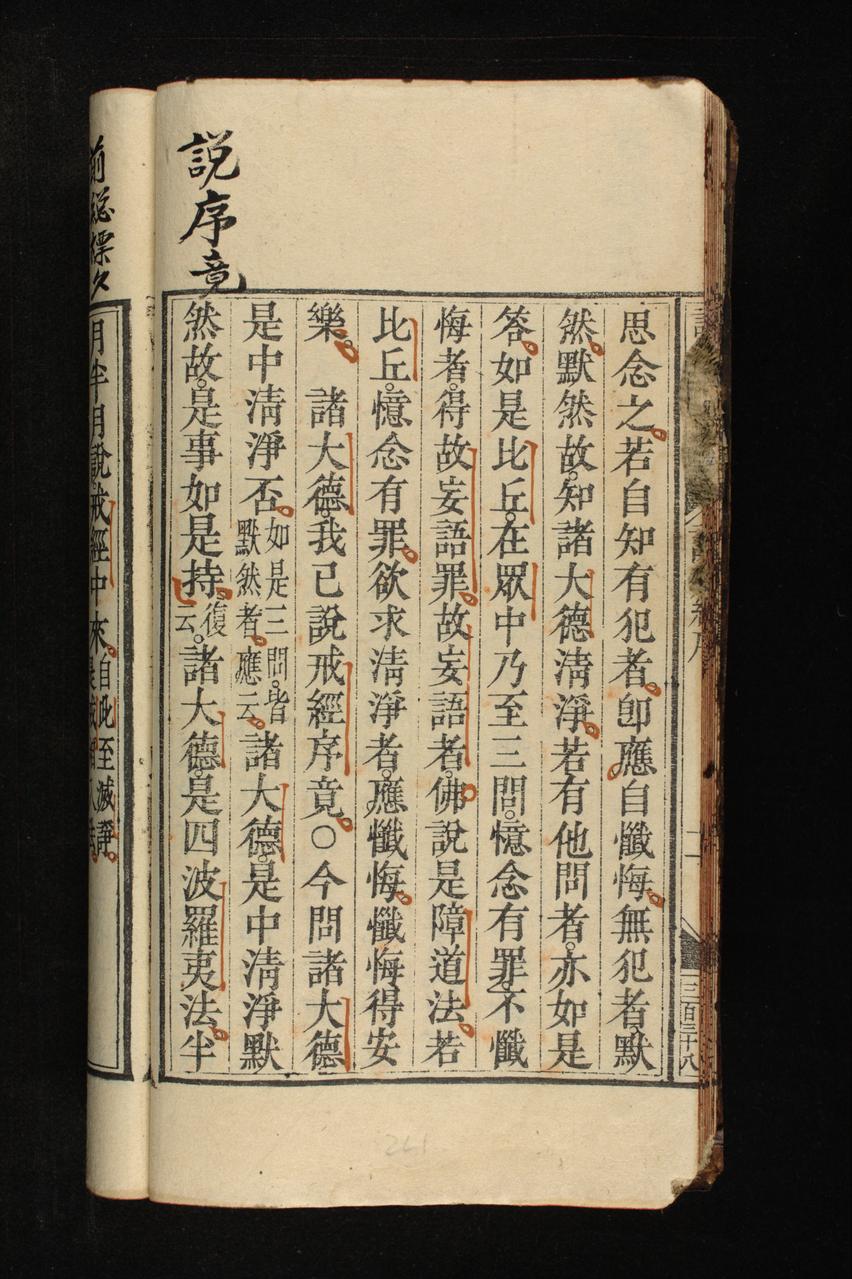 說序竟
思念之若自知有犯者。卽應自懺悔。無犯者默
然。默然故。知諸大德淸淨。若有他問者。亦如是
答。如是比丘。在眾中乃至三問。憶念有罪。不懺
悔者。得故妄語罪。故妄語者。佛說是障道法。若
比丘。憶念有罪。欲求淸淨者。應懺悔。懺悔得安
樂。 諸大德。我已說戒經序竟。○今問諸大德
是中淸淨否。如是三問。皆默然者。應云。諸大德。是中淸淨默
然故。是事如是持。復云。諸大德。是四波羅夷法。半
月半月說。戒經中來。自此至滅諍
三百三十八
前總標
261